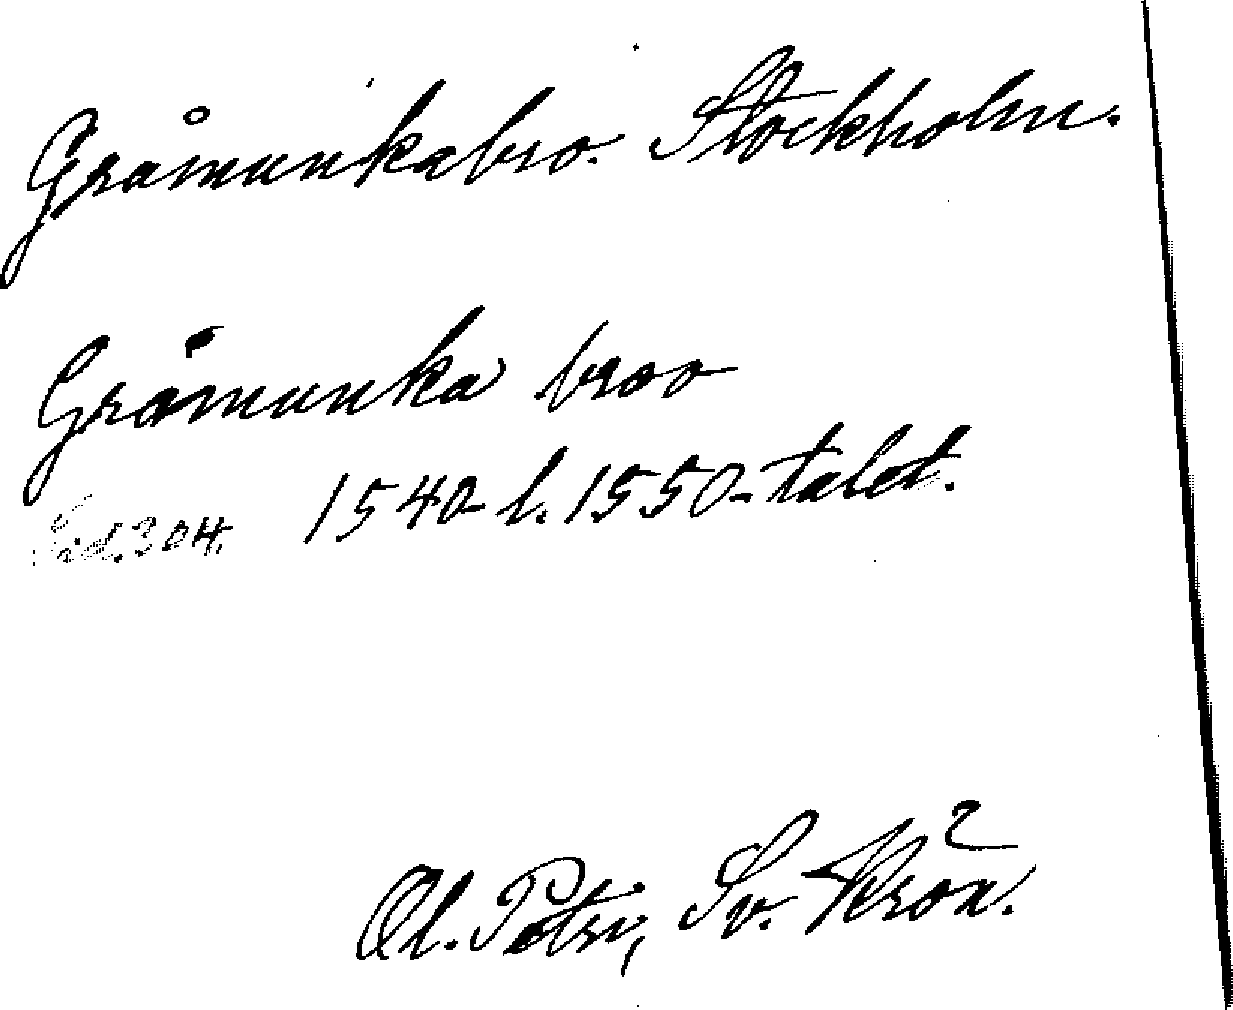 Gråmunkabro. Stockholm.
Gråmunka broo
Sid. 304. 1540- l. 1550-talet.
Ol. Petri, Sv. Krön. 2